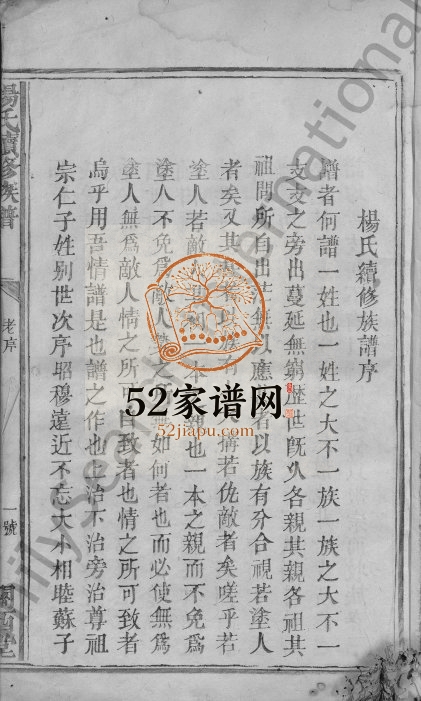 楊氏續修族譜序
譜者何譜一姓也一姓之大不一族一族之大不一
支支之旁出蔓延無窮歷世既久各親其親各祖其
祖問所自出茫無以應者以族有分合視若塗人
者矣又其有稱若仇敵者矣嗟乎若
塗人若敵本親也一本之親而不免為
塗人不免為敵人無如何者也而必使無為
塗人無為敵人情之所可自致者也情之所可致者
烏乎用吾情譜是也譜之作也上治下治旁治尊祖
崇仁子姓別世次序昭穆遠近不忘大小相睦蘇子
楊氏續修族譜
老序
一號
關西堂
52家谱网
52jiapu.com
FamilySearch International